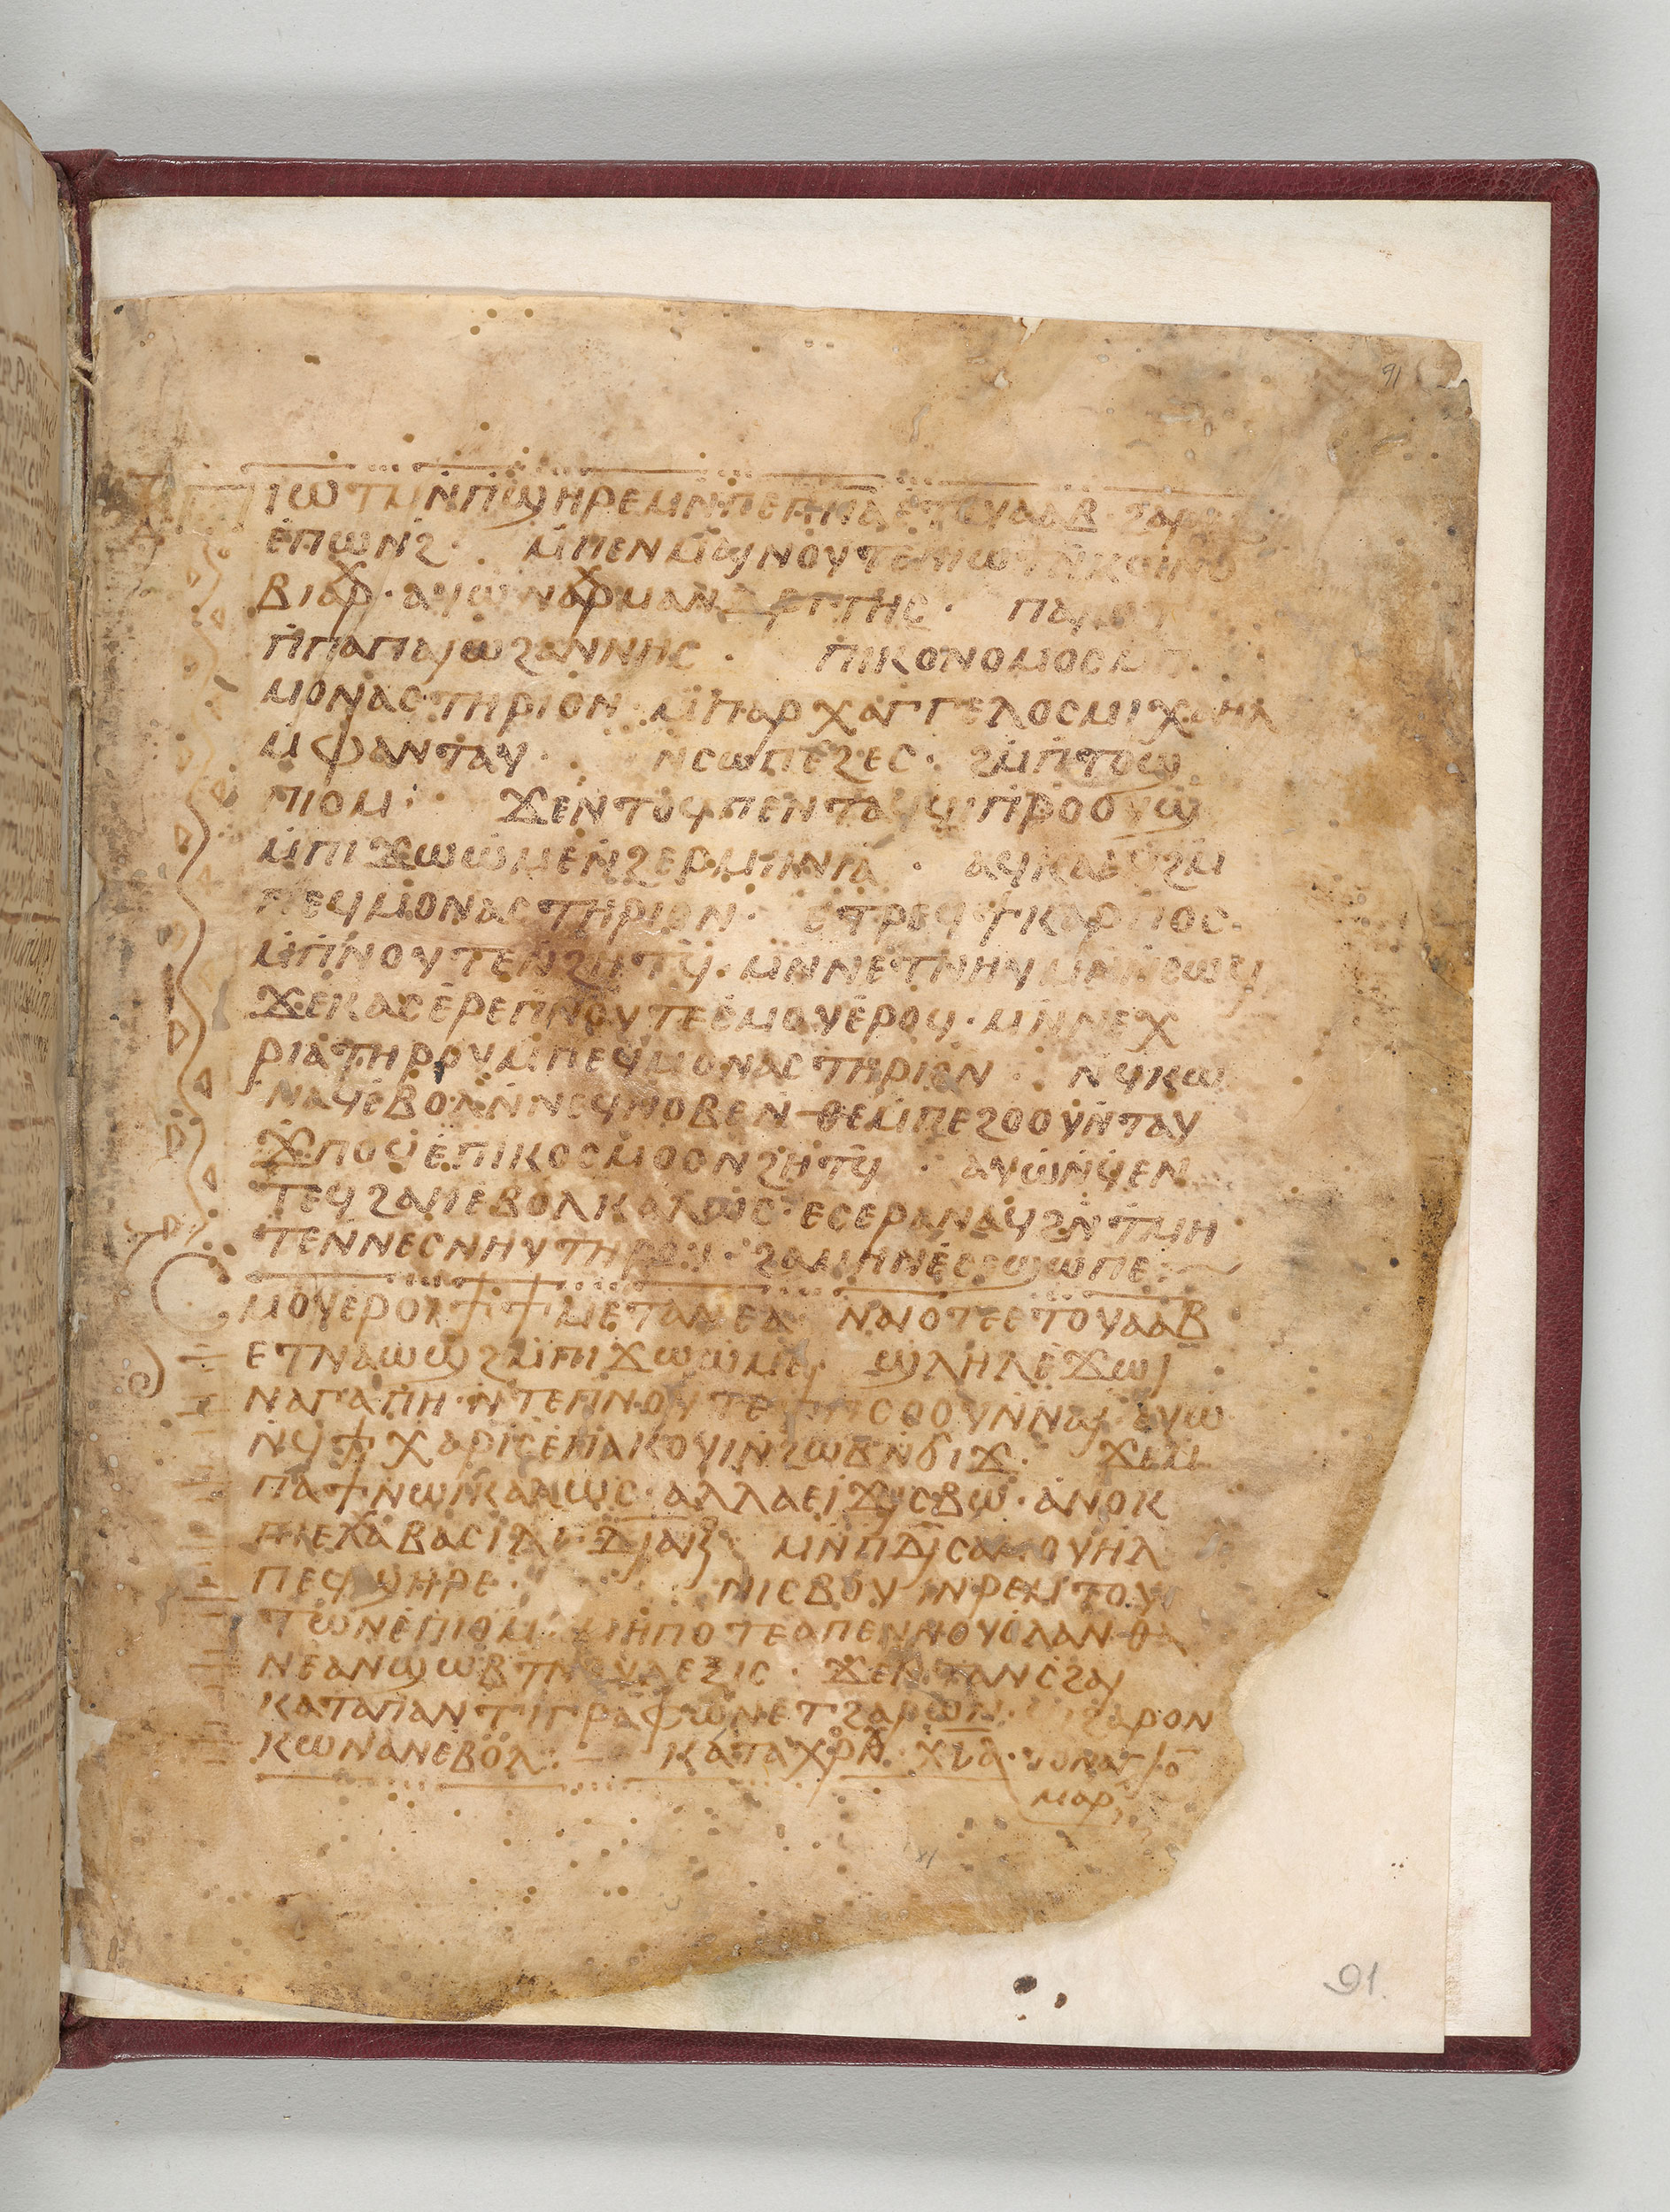 91
ⲡⲓⲱⲧ ⲙⲛ̄ ⲡϣⲏⲣⲉ ⲙⲛ ⲡⲉⲡⲛⲁ ⲉⲧⲟⲩⲁⲁⲃ
ⲉⲡⲱⲛϩ · ⲙ̄ⲡⲉⲛⲙⲁⲓⲛⲟⲩⲧⲉ ⲛⲓⲱⲧ ⲛ̄ⲕⲟⲓⲛⲟ
ⲃⲓⲁⲣⲭ · ⲁⲩⲱ ⲛⲁⲣⲭⲓⲙⲁⲛⲇⲣⲓⲧⲏⲥ ·
ⲡ̄ⲡⲁⲡⲁ ⲓ̈ⲱϩⲁⲛⲛⲏⲥ · ⲡⲓⲕⲟⲛⲟⲙⲟⲥ ⲙ̄ⲡ
ⲙⲟⲛⲁⲥⲧⲏⲣⲓⲟⲛ · ⲙ̄ⲡⲁⲣⲭⲁⲅⲅⲉⲗⲟⲥ ⲙⲓⲭⲁⲏⲗ
ⲙ̄ⲫⲁⲛⲧⲁⲩ · ⲛⲥⲱⲡⲉϩⲉⲥ · ϩⲙ̄ ⲡⲧⲟϣ
ⲡⲓⲟⲙ : ϫⲉ ⲛⲧⲟϥ ⲡⲉⲛⲧⲁϥϥⲓ ⲡ̄ⲣⲟⲟⲩϣ
ⲙ̄ⲡⲓϫⲱⲱⲙⲉ ⲛ̄ϩⲉⲣⲙⲏⲛⲓⲁ · ⲁϥⲕⲁⲁϥ ϩⲙ̄
ⲡⲉϥⲙⲟⲛⲁⲥⲧⲏⲣⲓⲟⲛ · ⲉⲧⲣⲉϥϯⲕⲁⲣⲡⲟⲥ
ⲙ̄ⲡⲛⲟⲩⲧⲉ ⲛ̄ϩⲏⲧϥ · ⲙⲛ̄ ⲛⲉⲧⲛⲏⲩ ⲙⲛ̄ⲛⲥⲱϥ
ϫⲉⲕⲁⲥ ⲉⲣⲉ ⲡⲛⲟⲩⲧⲉ ⲥⲙⲟⲩ ⲉⲣⲟϥ · ⲙⲛ̄ ⲛⲉⲭ
ⲣⲓⲁ ⲧⲏⲣⲟⲩ ⲙ̄ⲡⲉϥⲙⲟⲛⲁⲥⲧⲏⲣⲓⲟⲛ · ⲛ̄ϥⲕⲱ
ⲛⲁϥ ⲉⲃⲟⲗ ⲛ̄ⲛⲉϥⲛⲟⲃⲉ ⲛ̄ⲑⲉ ⲙ̄ⲡⲉϩⲟⲟⲩ ⲛ̄ⲧⲁⲩ
ϫⲡⲟϥ ⲉⲡⲓⲕⲟⲥⲙⲟⲥ ⲛϩⲏⲧϥ · ⲁⲩⲱ ⲛ̄ϥⲉⲛ
ⲧⲉϥϩⲁⲏ ⲉⲃⲟⲗ ⲕⲁⲗⲱⲥ · ⲉⲥⲉⲣⲁⲛⲁϥ ϩⲛ̄ ⲧⲙⲏ
ⲧⲉ ⲛⲛⲉⲥⲛⲏⲩ ⲧⲏⲣⲟⲩ · ϩⲁⲙⲏⲛ ⲉⲥⲉϣⲱⲡⲉ :
ⲥⲙⲟⲩ ⲉⲣⲟⲓ ϯ ϯⲙⲉⲧⲁⲛⲉⲁ ⲛⲁⲓⲟⲧⲉ ⲉⲧⲟⲩⲁⲁⲃ
ⲉⲧⲛⲁⲱϣ ϩⲙ̄ ⲡⲓϫⲱⲱⲙⲉ, ϣⲗⲏⲗ ⲉϫⲱⲓ
ⲛⲁⲅⲁⲡⲏ · ⲛ̄ⲧⲉ ⲡⲛⲟⲩⲧⲉ ϯ ⲥⲟⲟⲩⲛ ⲛⲁⲓ ⲁⲩⲱ
ⲛ̄ϥϯ ⲭⲁⲣⲓⲥ ⲉⲡⲁⲕⲟⲩⲓ ⲛ̄ϩⲱⲃ ⲛ̄ϭⲓϫ · ϫⲉ ⲙ̄
ⲡⲁϯⲛⲱⲓ ⲕⲁⲗⲱⲥ · ⲁⲗⲗⲁ ⲉⲓϫⲓⲥⲃⲱ · ⲁⲛⲟⲕ
ⲡⲓⲉⲗⲁⲭ ⲃⲁⲥⲓⲗⲓ ⲇⲓⲁⲕ ⲙⲛ ⲡⲇⲓ ⲥⲁⲙⲟⲩⲏⲗ
ⲡⲉϥϣⲏⲣⲉ · ⲛⲓⲥⲃⲟⲩⲓ ⲛⲣⲉⲙⲧⲟⲩ
ⲧⲱⲛ ⲉⲡⲓⲟⲙ · ⲙⲏⲡⲟⲧⲉ ⲁⲡⲉⲛⲛⲟⲩⲥ ⲗⲁⲛⲑⲁ
ⲛⲉ ⲁⲛϣⲱⲃⲧ ⲛⲟⲩⲗⲉⲝⲓⲥ · ϫⲉ ⲛⲧⲁⲛⲥϩⲁⲓ
ⲕⲁⲧⲁ ⲡⲁⲛⲧⲓⲅⲣⲁⲫⲱⲛ ⲉⲧϩⲁⲣⲱⲛ · ϩⲁⲣⲟⲛ
ⲕⲱ ⲛⲁⲛ ⲉⲃⲟⲗ : — ⲕⲁⲧⲁ ⲭⲣⲟⲛ
ⲙⲁⲣ
91.